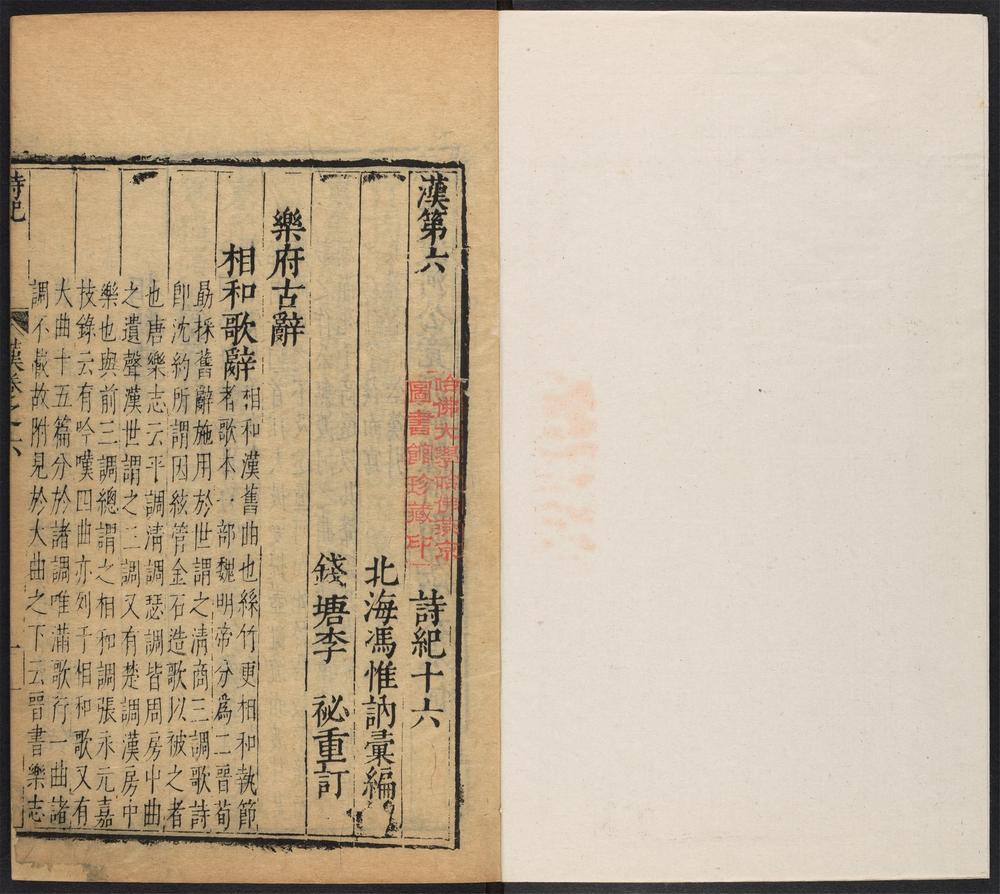 漢第六 詩紀十六
北海馮惟訥彙編
錢塘李 祕重訂
樂府古辭
相和歌辭
相和漢舊曲也絲竹更相和執節
者歌本一部魏明帝分為二晉荀
勗採舊辭施用於世謂之清商三調歌詩
即沈約所謂因絃管金石造歌以被之者
也唐樂志云平調清調瑟調皆周房中曲
之遺聲漢世謂之三調又有楚調漢房中
樂也與前三調總謂之相和調張永元嘉
技錄云有吟嘆四曲亦列于相和歌又有
大曲十五篇分於諸調唯滿歌行一曲諸
調不載故附見於大曲之下云晉書樂志
詩紀
漢卷之六
一
哈佛大學哈佛燕京
圖書館珍藏印